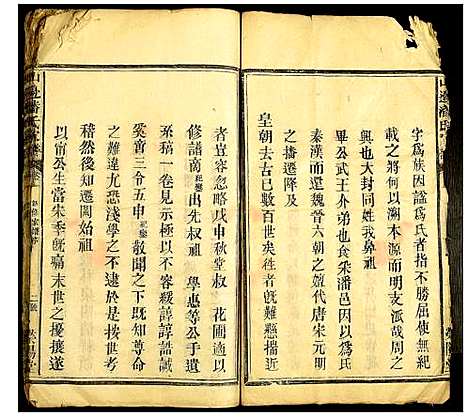 字爲族因諡爲氏者指不勝屈使無紀
載之將何以溯本源而明支派哉周之
興也大封同姓我鼻祖
公武王介弟也食采潘邑因以爲氏
秦漢而還魏晉六朝之嬗代唐宋元明
之播遷降及
皇朝去古已數百世矣徃者旣難攄近
者豈容忽略戊申秋堂叔 花圃適以
修譜商 出先叔祖 學惠等公手遺
系稿一卷見示極以不容緩諄諄誥誡
奚啻三令五申 敬聞之下旣知世系
之難違尤恐淺學之不逮于是按世考
稽然後知遷閩始祖
以甯公生當朱季旣痛末世之擾攘遂
山邊潘氏宗譜
二